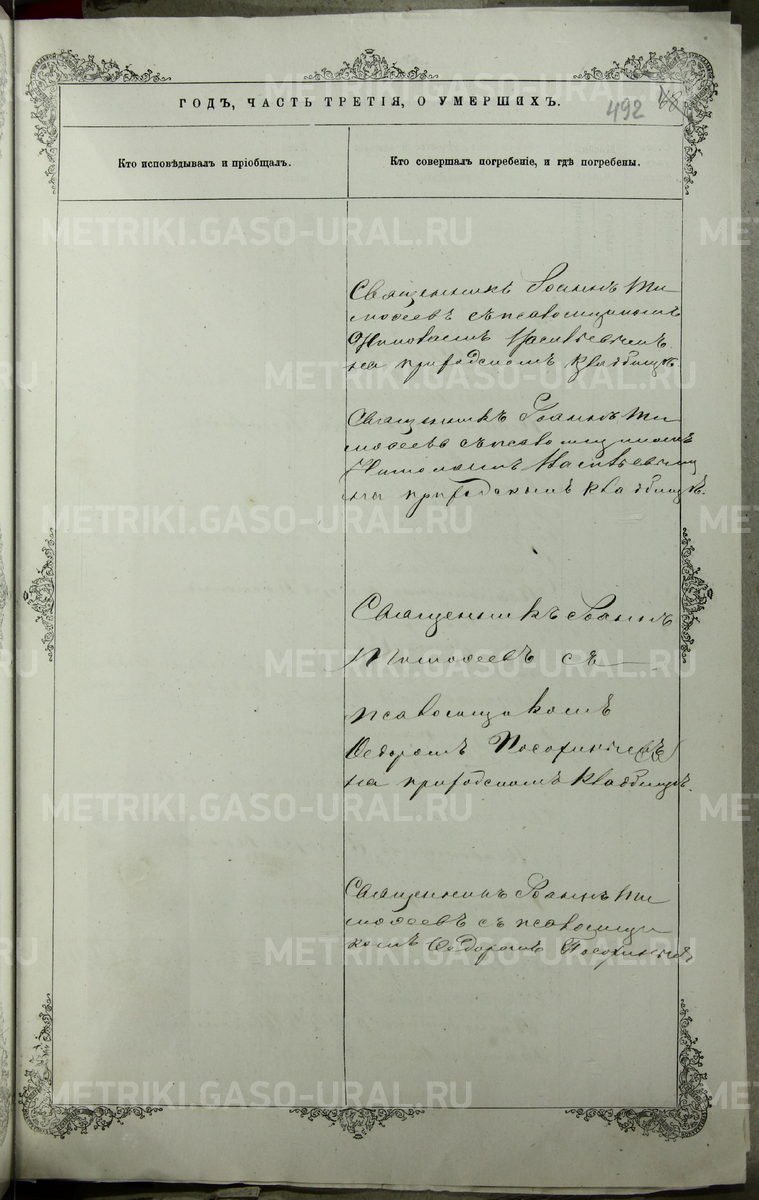 ГОДЪ, ЧАСТЬ ТРЕТІЯ, О УМЕРШИХЪ.
492
Кто исповѣдывалъ и пріобщалъ.
Кто совершалъ погребеніе, и гдѣ погребены.
Священникъ Іоаннъ Ти
моѳеевъ съ псаломщикомъ
на приходскомъ кладбищѣ.
Священникъ Іоаннъ Ти
моѳеевъ съ псаломщикомъ
на приходскомъ кладбищѣ.
Священникъ Іоаннъ
Тимоѳеевъ съ
псаломщикомъ
Ѳедоромъ
на приходскомъ кладбищѣ.
Священникъ Іоаннъ Ти
моѳеевъ съ псаломщи
комъ Ѳедоромъ
METRIKI.GASO-URAL.RU